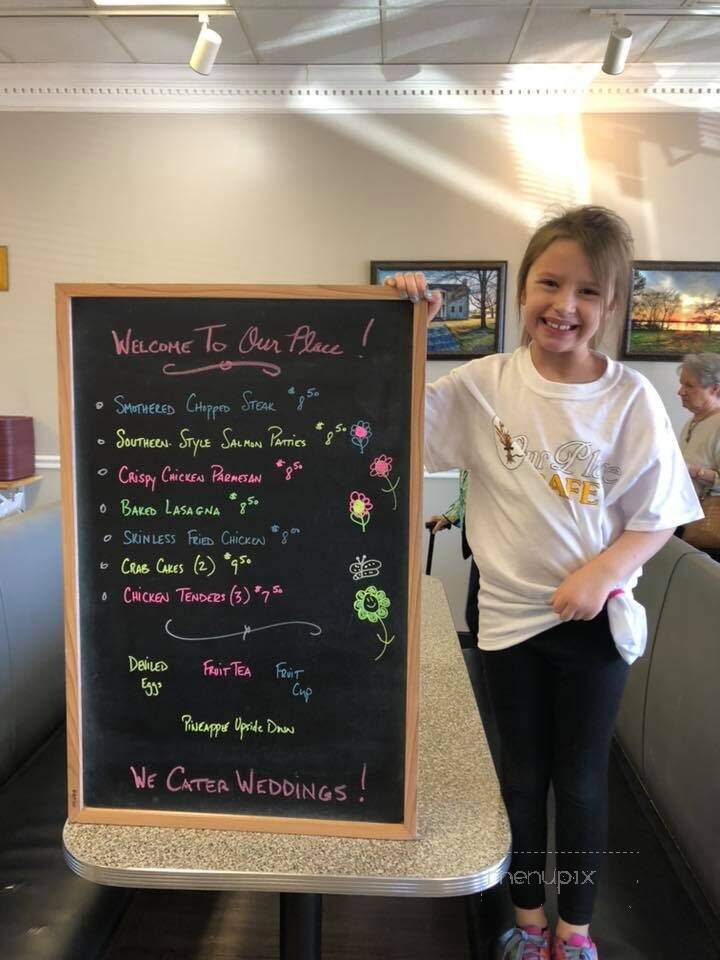 WELCOME TO Our Place!
SMOTHERED CHOPPED STEAK $8.50
SOUTHERN-STYLE SALMON PATTIES $8.50
CRISPY CHICKEN PARMESAN $8.50
BAKED LASAGNA $8.50
SKINLESS FRIED CHICKEN $8.00
CRAB CAKES (2) $9.50
CHICKEN TENDERS (3) $7.50
DEVILED Eggs
FRUIT TEA
FRUIT Cup
PINEAPPLE Upside Down
WE CATER WEDDINGS!
Our Place
CAFE
menupix